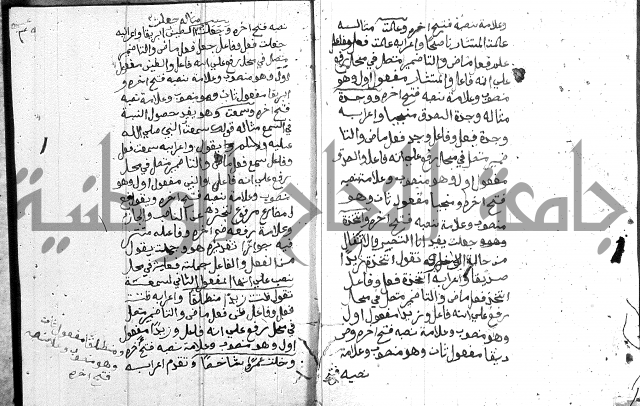 وعلامة نصبه فتح اخره وعلمت مثاله
علمت المستشار ناصحا واعرابه علمت فعل وفاعل
علم فعل ماض والتا ضمير متصل في محل رفع
علي انه فاعل والمستشار مفعول اول وهو
منصوب وعلامة نصبه فتح اخره ووجد
مثاله وجدت الصدق منجيا واعرابه
وجدت فعل وفاعل وجد فعل ماض والتا
ضمير متصل في محل رفع علي انه فاعل والصدق
مفعول اول وهو منصوب وعلامة نصبه
فتح اخره ومنجيا مفعول ثان وهو
منصوب وعلامة نصبه فتح اخره واتخذ
وهو وجعلت يفيدان التصيير والانتقال
من حالة الي اخري تقول اتخذت زيدا
صديقا واعرابه اتخذت فعل وفاعل
اتخذ فعل ماض والتا ضمير متصل في محل
رفع علي انه فاعل وزيدا مفعول اول
وهو منصوب وعلامة نصبه فتح اخره وصـ
ديقا مفعول ثان وهو منصوب وعلامة
نصبه فتح
مثاله جعلت
نصبه فتح اخره وجعلت الطين ابريقا واعرابه
جعلت فعل وفاعل جعل فعل ماض والتا ضمير
متصل في محل رفع علي انه فاعل والطين مفعول
اول وهو منصوب وعلامة نصبه فتح اخره و
ابريقا مفعول ثان وهو منصوب وعلامة نصبه
فتح اخره وسمعت وهو يفيد حصول النسبة
في السمع مثاله قولك سمعت النبي صلي الله
عليه وسلم يقول واعرابه سمعت فعل
وفاعل سمع فعل ماض والتا ضمير متصل في محل
رفع علي انه فاعل والنبي مفعول اول وهو
منصوب وعلامة نصبه فتح اخره ويقول فعل
مضارع مرفوع لتجرده عن الناصب والجازم
وعلامة رفعه ضم اخره وفاعله مستتر
فيه جوازا تقديره هو وجملة يقول
من الفعل والفاعل جملة فعلية في محل
نصب علي انها المفعول الثاني لسمعت
تقول ظننت زيدا منطلقا واعرابه ظننت
فعل وفاعل ظن فعل ماض والتا ضمير متصل
في محل رفع علي انه فاعل وزيدا مفعول
اول وهو منصوب وعلامة نصبه فتح اخره
وخلت عمرا شاخصا وتقدم اعرابه
ومنطلقا مفعول ثان
وهو منصوب وعلامة نصبه
فتح اخره
جامعة النجاح الوطنية